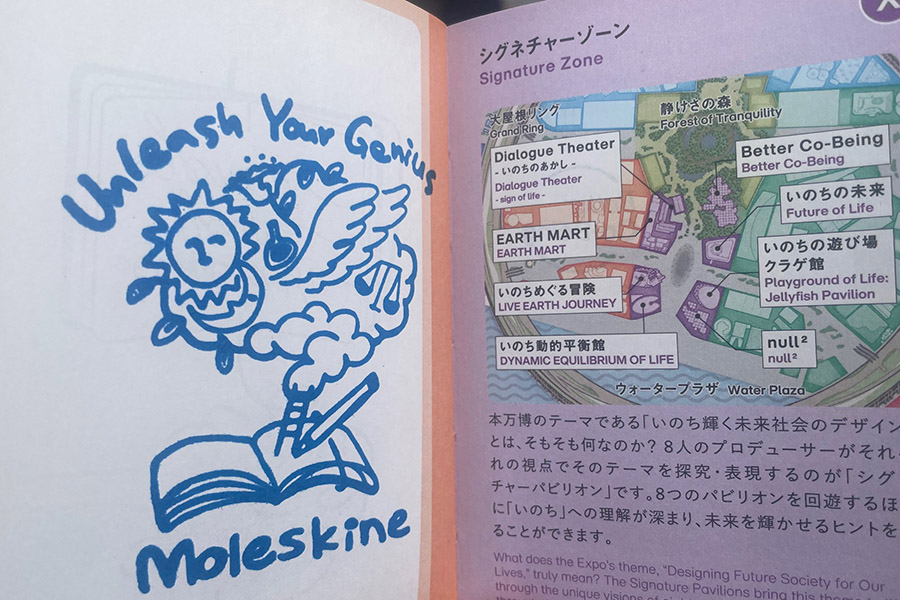 Unleash Your Genius
Moleskine
シグネチャーゾーン
Signature Zone
大屋根リング
Grand Ring
静けさの森
Forest of Tranquility
Dialogue Theater
- いのちのあかし -
Dialogue Theater
- sign of life -
Better Co-Being
Better Co-Being
いのちの未来
Future of Life
EARTH MART
EARTH MART
いのちの遊び場
クラゲ館
Playground of Life:
Jellyfish Pavilion
いのちめぐる冒険
LIVE EARTH JOURNEY
いのち動的平衡館
DYNAMIC EQUILIBRIUM OF LIFE
null²
null²
ウォータープラザ Water Plaza
本万博のテーマである「いのち輝く未来社会のデザイン
とは、そもそも何なのか? 8人のプロデューサーがそれ
れの視点でそのテーマを探究・表現するのが「シグ
チャーパビリオン」です。8つのパビリオンを回遊するほ
に「いのち」への理解が深まり、未来を輝かせるヒントを
ることができます。
What does the Expo's theme, "Designing Future Society for Our
Lives," truly mean? The Signature Pavilions bring this theme
through the unique visions of